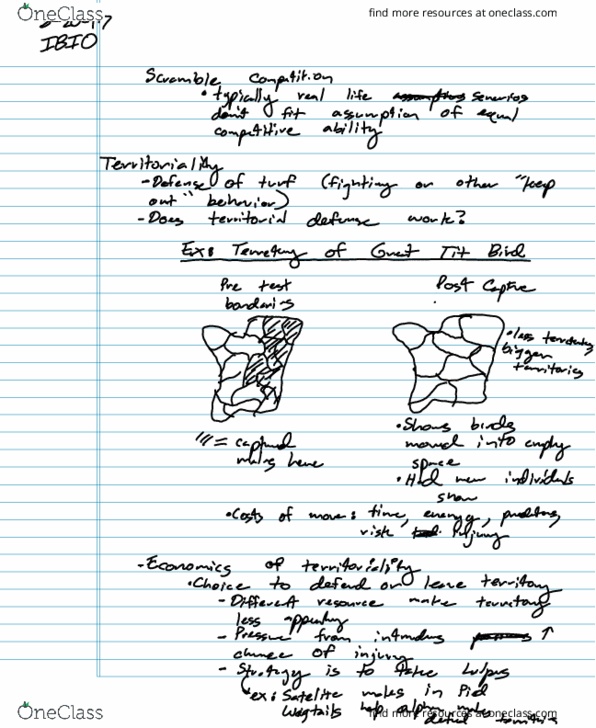 OneClass
find more resources at oneclass.com
IBIO
Scramble Competition
• typically real life senerios
don't fit assumption of equal
competitive ability
Territoriality
- Defense of turf (fighting or other "keep
out" behavior)
- Does territorial defense work?
Ex: Territory of Great Tit Bird
Pre test
Post Captive
• less territory
bigger
territories
/// = captured
males here
• Shows birds
moved into empty
space
• Had new individuals
show
• Costs of move: time, energy,
risk injury
- Economics of territoriality
• Choice to defend or leave territory
- Different resource make territory
less
- Pressure from intruders ↑
chance of injury
- Strategy is to take helpers
ex: Satelite males in Pied
wagtails help alpha male
OneClass
find more resources at oneclass.com